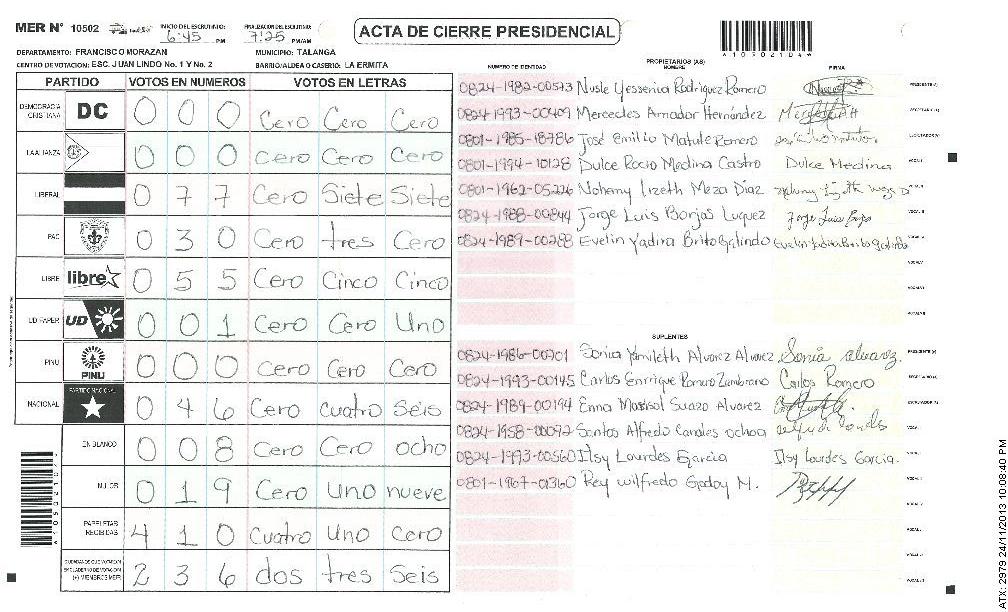 MER N° 10502 INICIO DEL ESCRUTINIO: 6:45 PM FINALIZACION DEL ESCRUTINIO: 7:25 PM/AM
ACTA DE CIERRE PRESIDENCIAL
A10502104
DEPARTAMENTO: FRANCISCO MORAZAN MUNICIPIO: TALANGA
CENTRO DE VOTACION: ESC. JUAN LINDO No. 1 Y No. 2 BARRIO/ALDEA O CASERIO: LA ERMITA
PARTIDO VOTOS EN NUMEROS VOTOS EN LETRAS
DEMOCRACIA CRISTIANA DC 0 0 0 Cero Cero Cero
LA ALIANZA 0 0 0 Cero Cero Cero
LIBERAL 0 7 7 Cero Siete Siete
PAC 0 3 0 Cero tres Cero
LIBRE libre 0 5 5 Cero Cinco Cinco
UD FAPER UD 0 0 1 Cero Cero Uno
PINU PINU 0 0 0 Cero Cero Cero
NACIONAL PARTIDO NACIONAL 0 4 6 Cero cuatro seis
EN BLANCO 0 0 8 Cero Cero ocho
NULOS 0 1 9 Cero uno nueve
PAPELETAS RECIBIDAS 4 1 0 Cuatro uno cero
CIUDADANOS QUE VOTARON EN CUADERNO DE VOTACION (+) MIEMBROS MER 2 3 6 dos tres seis
NUMERO DE IDENTIDAD PROPIETARIOS (AS) NOMBRE FIRMA
0824-1982-00573 Nusle Yessenia Rodriguez Romero PRESIDENTE
0824-1993-00409 Mercedes Amador Hernández SECRETARIO
0801-1985-18786 José Emilio Matute Romero ESCRUTADOR
0801-1994-10128 Dulce Rocio Medina Castro Dulce Medina VOCAL
0801-1962-05226 Nohemy Lizeth Meza Diaz VOCAL
0824-1988-00844 Jorge Luis Borjas Luquez Jorge Luis Borjas VOCAL
0824-1989-00288 Evelin Yadira Brito Galindo Evelin Yadira Brito Galindo VOCAL
VOCAL
VOCAL
VOCAL
SUPLENTES
0824-1986-00701 Sonia Yamileth Alvarez Alvarez Sonia alvarez PRESIDENTE
0824-1993-00145 Carlos Enrrique Romero Zambrano Carlos Romero SECRETARIO
0824-1989-00194 Enna Marisol Suazo Alvarez ESCRUTADOR
0824-1958-00092 Santos Alfredo Canales ochoa VOCAL
0824-1993-00560 Ilsy Lourdes Garcia Ilsy Lourdes Garcia. VOCAL
0801-1967-01360 Rey wilfredo Godoy M. VOCAL
VOCAL
VOCAL
VOCAL
VOCAL
ATX: 2979 24/11/2013 10:08:40 PM